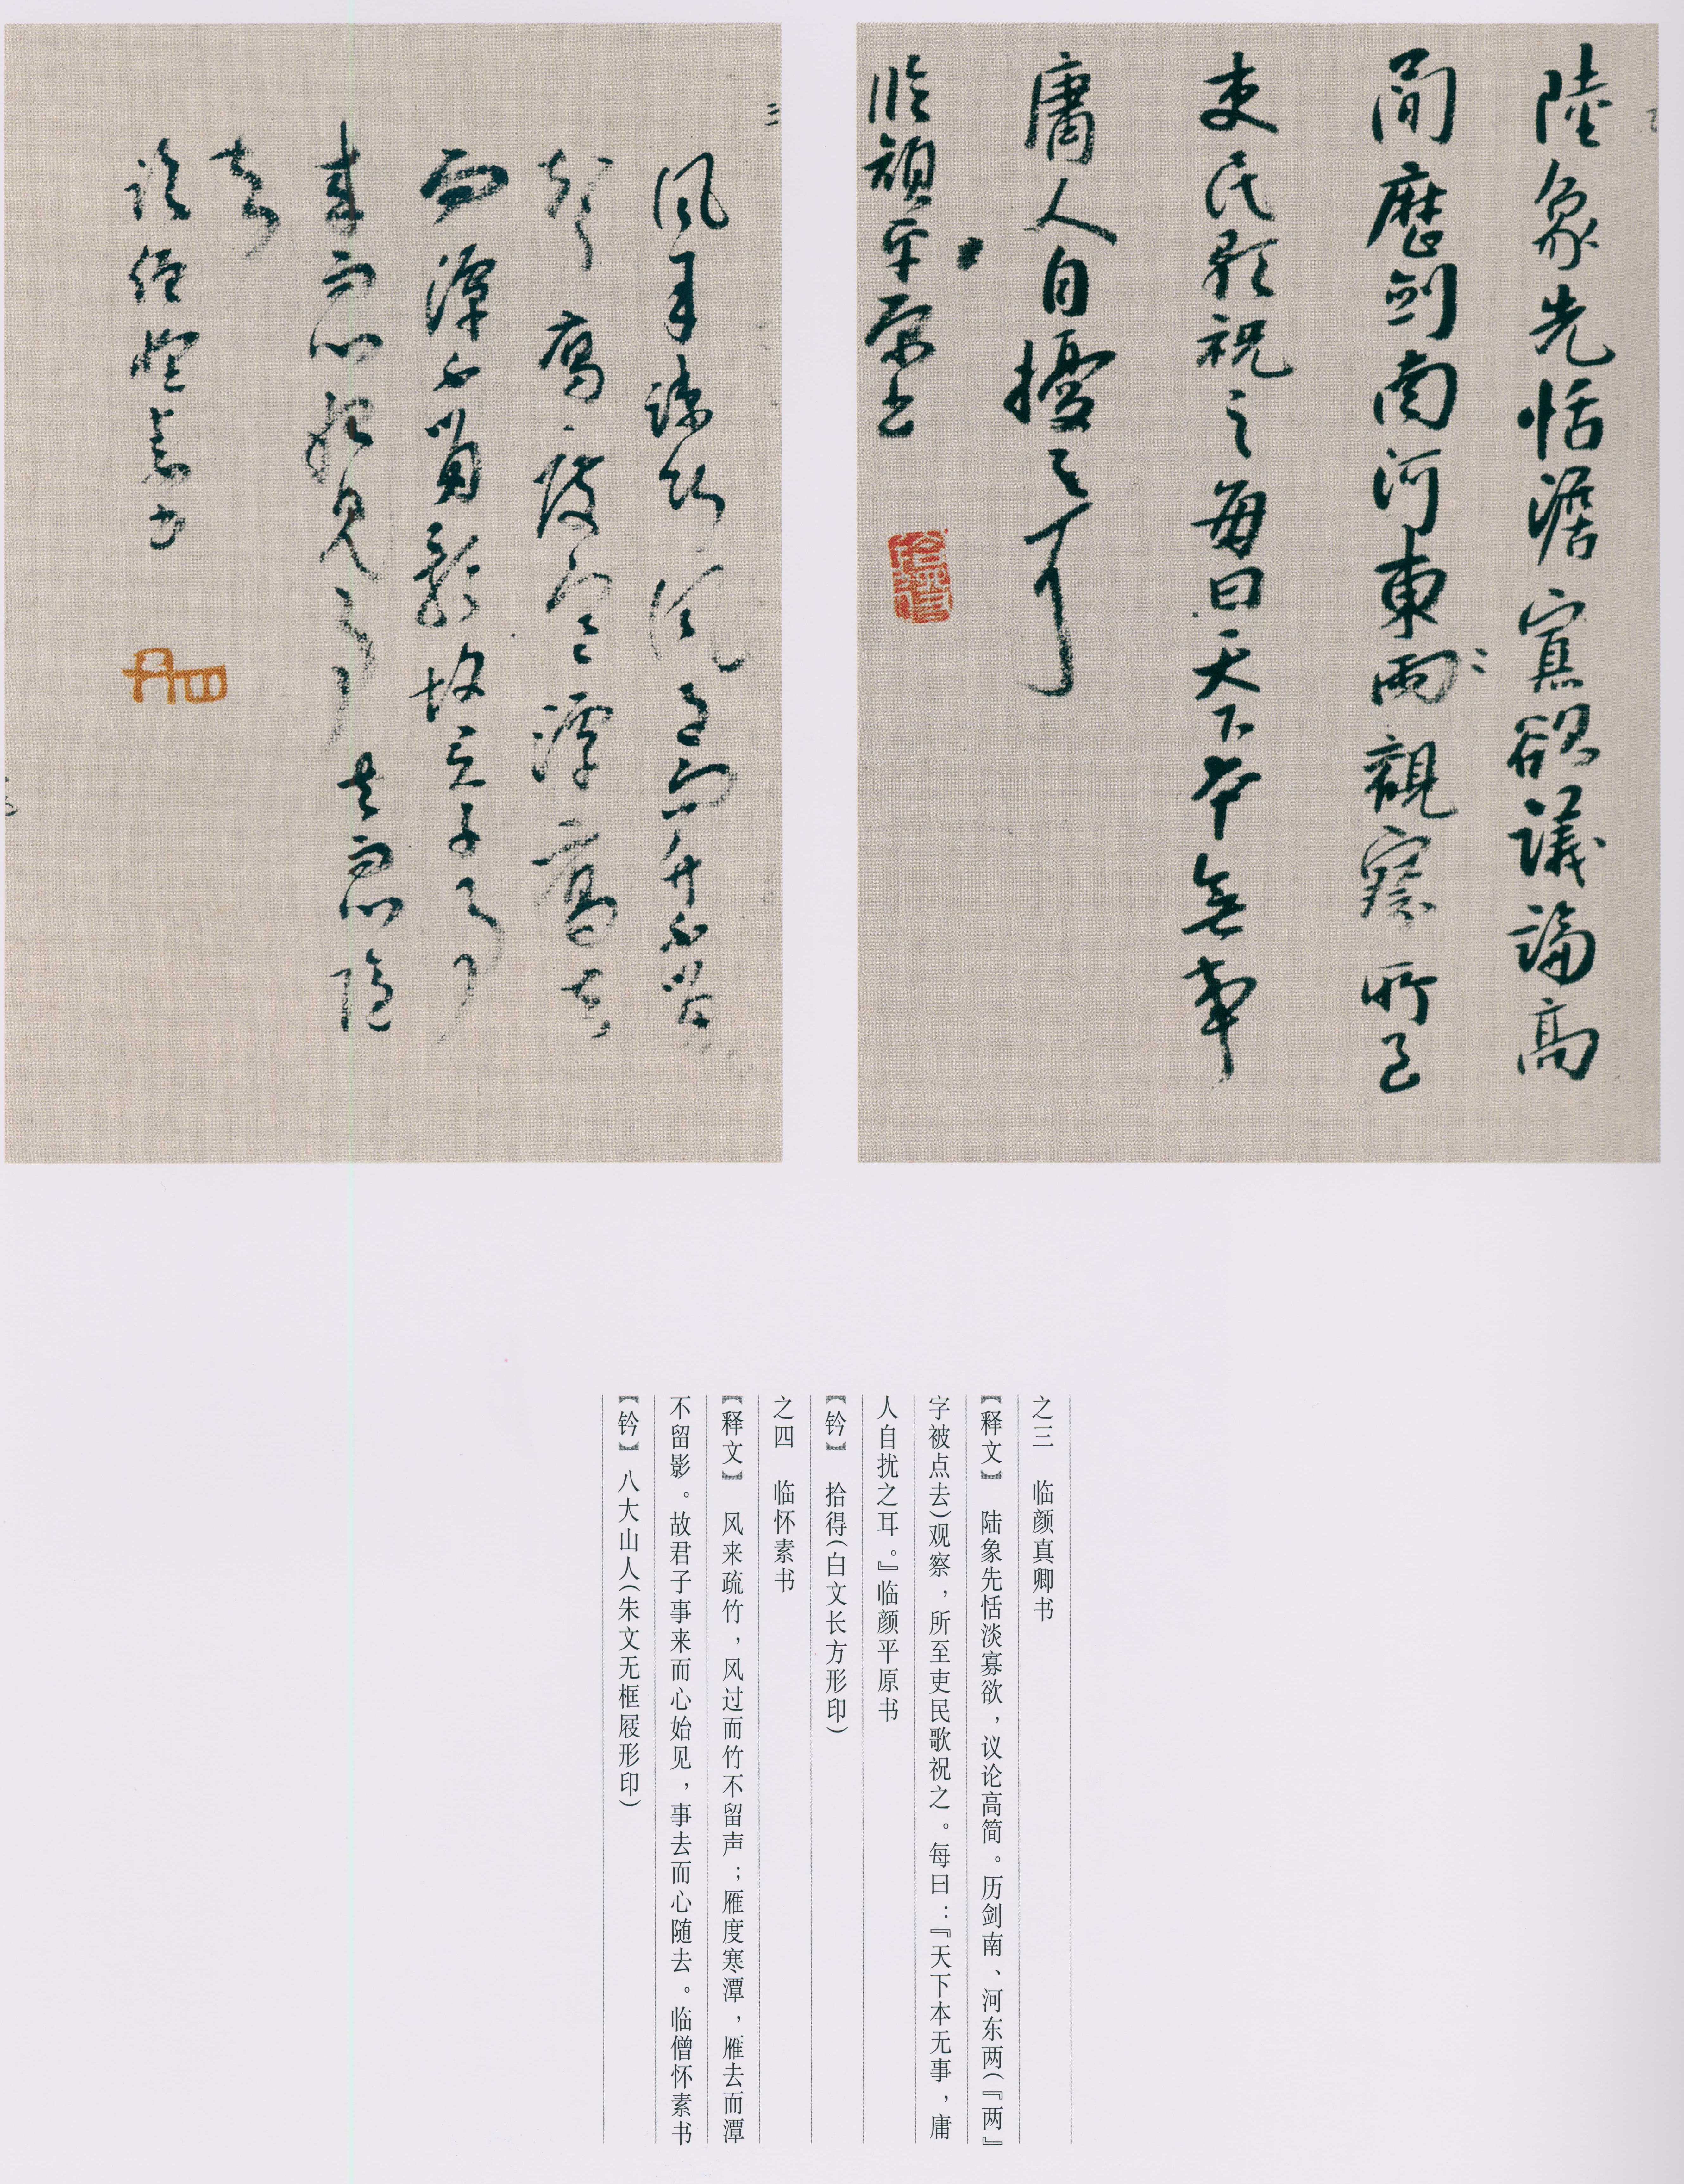 陸象先恬澹寡欲議論高
简歷剑南河東兩觀察所已
吏民歌祝之每曰天下本無事
庸人自擾之耳
臨颜平原书
風来疎竹風过而竹不留
声雁度寒潭雁去
而潭不留影故君子事
来而心始见事去而心随
去
临僧怀素书
之三 临颜真卿书
【释文】 陆象先恬淡寡欲，议论高简。历剑南、河东两(『两』
字被点去)观察，所至吏民歌祝之。每曰：『天下本无事，庸
人自扰之耳。』临颜平原书
【钤】 拾得(白文长方形印)
之四 临怀素书
【释文】 风来疏竹，风过而竹不留声；雁度寒潭，雁去而潭
不留影。故君子事来而心始见，事去而心随去。临僧怀素书
【钤】 八大山人(朱文无框屐形印)